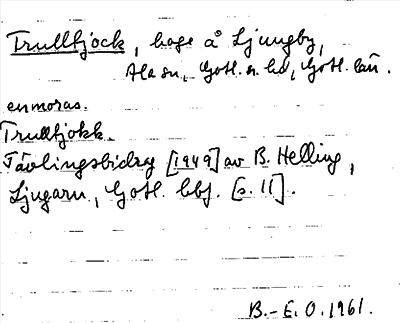 Trullbjock, hage å Ljungby,
Ala sn, Gotl. n. hd, Gotl. län.
enmoras.
Trullbjokk.
Tävlingsbidrag [1949] av B. Helling,
Ljugarn, Gotl. bbf. [s. 11].
B.-E. O. 1961.